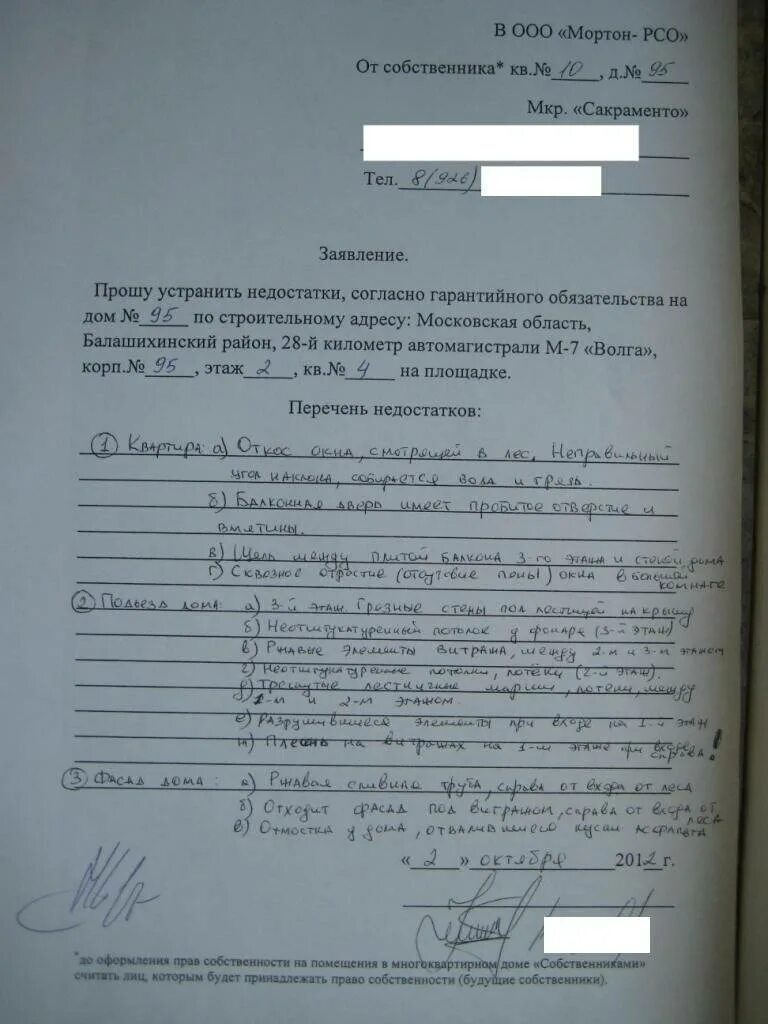 В ООО «Мортон- РСО»
От собственника* кв.№ 10 , д.№ 95
Мкр. «Сакраменто»
Тел. 8(926)
Заявление.
Прошу устранить недостатки, согласно гарантийного обязательства на
дом № 95 по строительному адресу: Московская область,
Балашихинский район, 28-й километр автомагистрали М-7 «Волга»,
корп.№ 95 , этаж 2 , кв.№ 4 на площадке.
Перечень недостатков:
1 Квартира: а) Откос окна, смотрящей в лес. Неправильный
угол наклона, собирается вода и грязь.
б) Балконная дверь имеет пробитое отверстие и
вмятины.
в) Щель между плитой балкона 3-го этажа и стеной дома
г) Сквозное отрстие (отсутсвие пены) окна в большей
комнате
2 Подьезд дома: а) 3-й этаж. Грозные стены под лестницей на крышу
б) Неоштукатуренный потолок у фонаря (3-й этаж)
в) Ржавые элементы витража, между 2-м и 3-м этажом
г) Неоштукатуренные потолки, потёки (2-й этаж).
д) Треснутые лестничные марши, потёки, между
1-м и 2-м этажом.
е) Разрушившиеся элементы при входе на 1-й этаж
ж) Плесень на витражах на 1-м этаже при входе
справа!
3 Фасад дома: а) Ржавая сливная труба, справа от входа от леса
б) Отходит фасад под витражом, справа от входа от
леса
в) Отмостка у дома, отвалившиего куски асфальта
« 2 » октября 2012 г.
*до оформления прав собственности на помещения в многоквартирном доме «Собственниками»
считать лиц, которым будет принадлежать право собственности (будущие собственники).